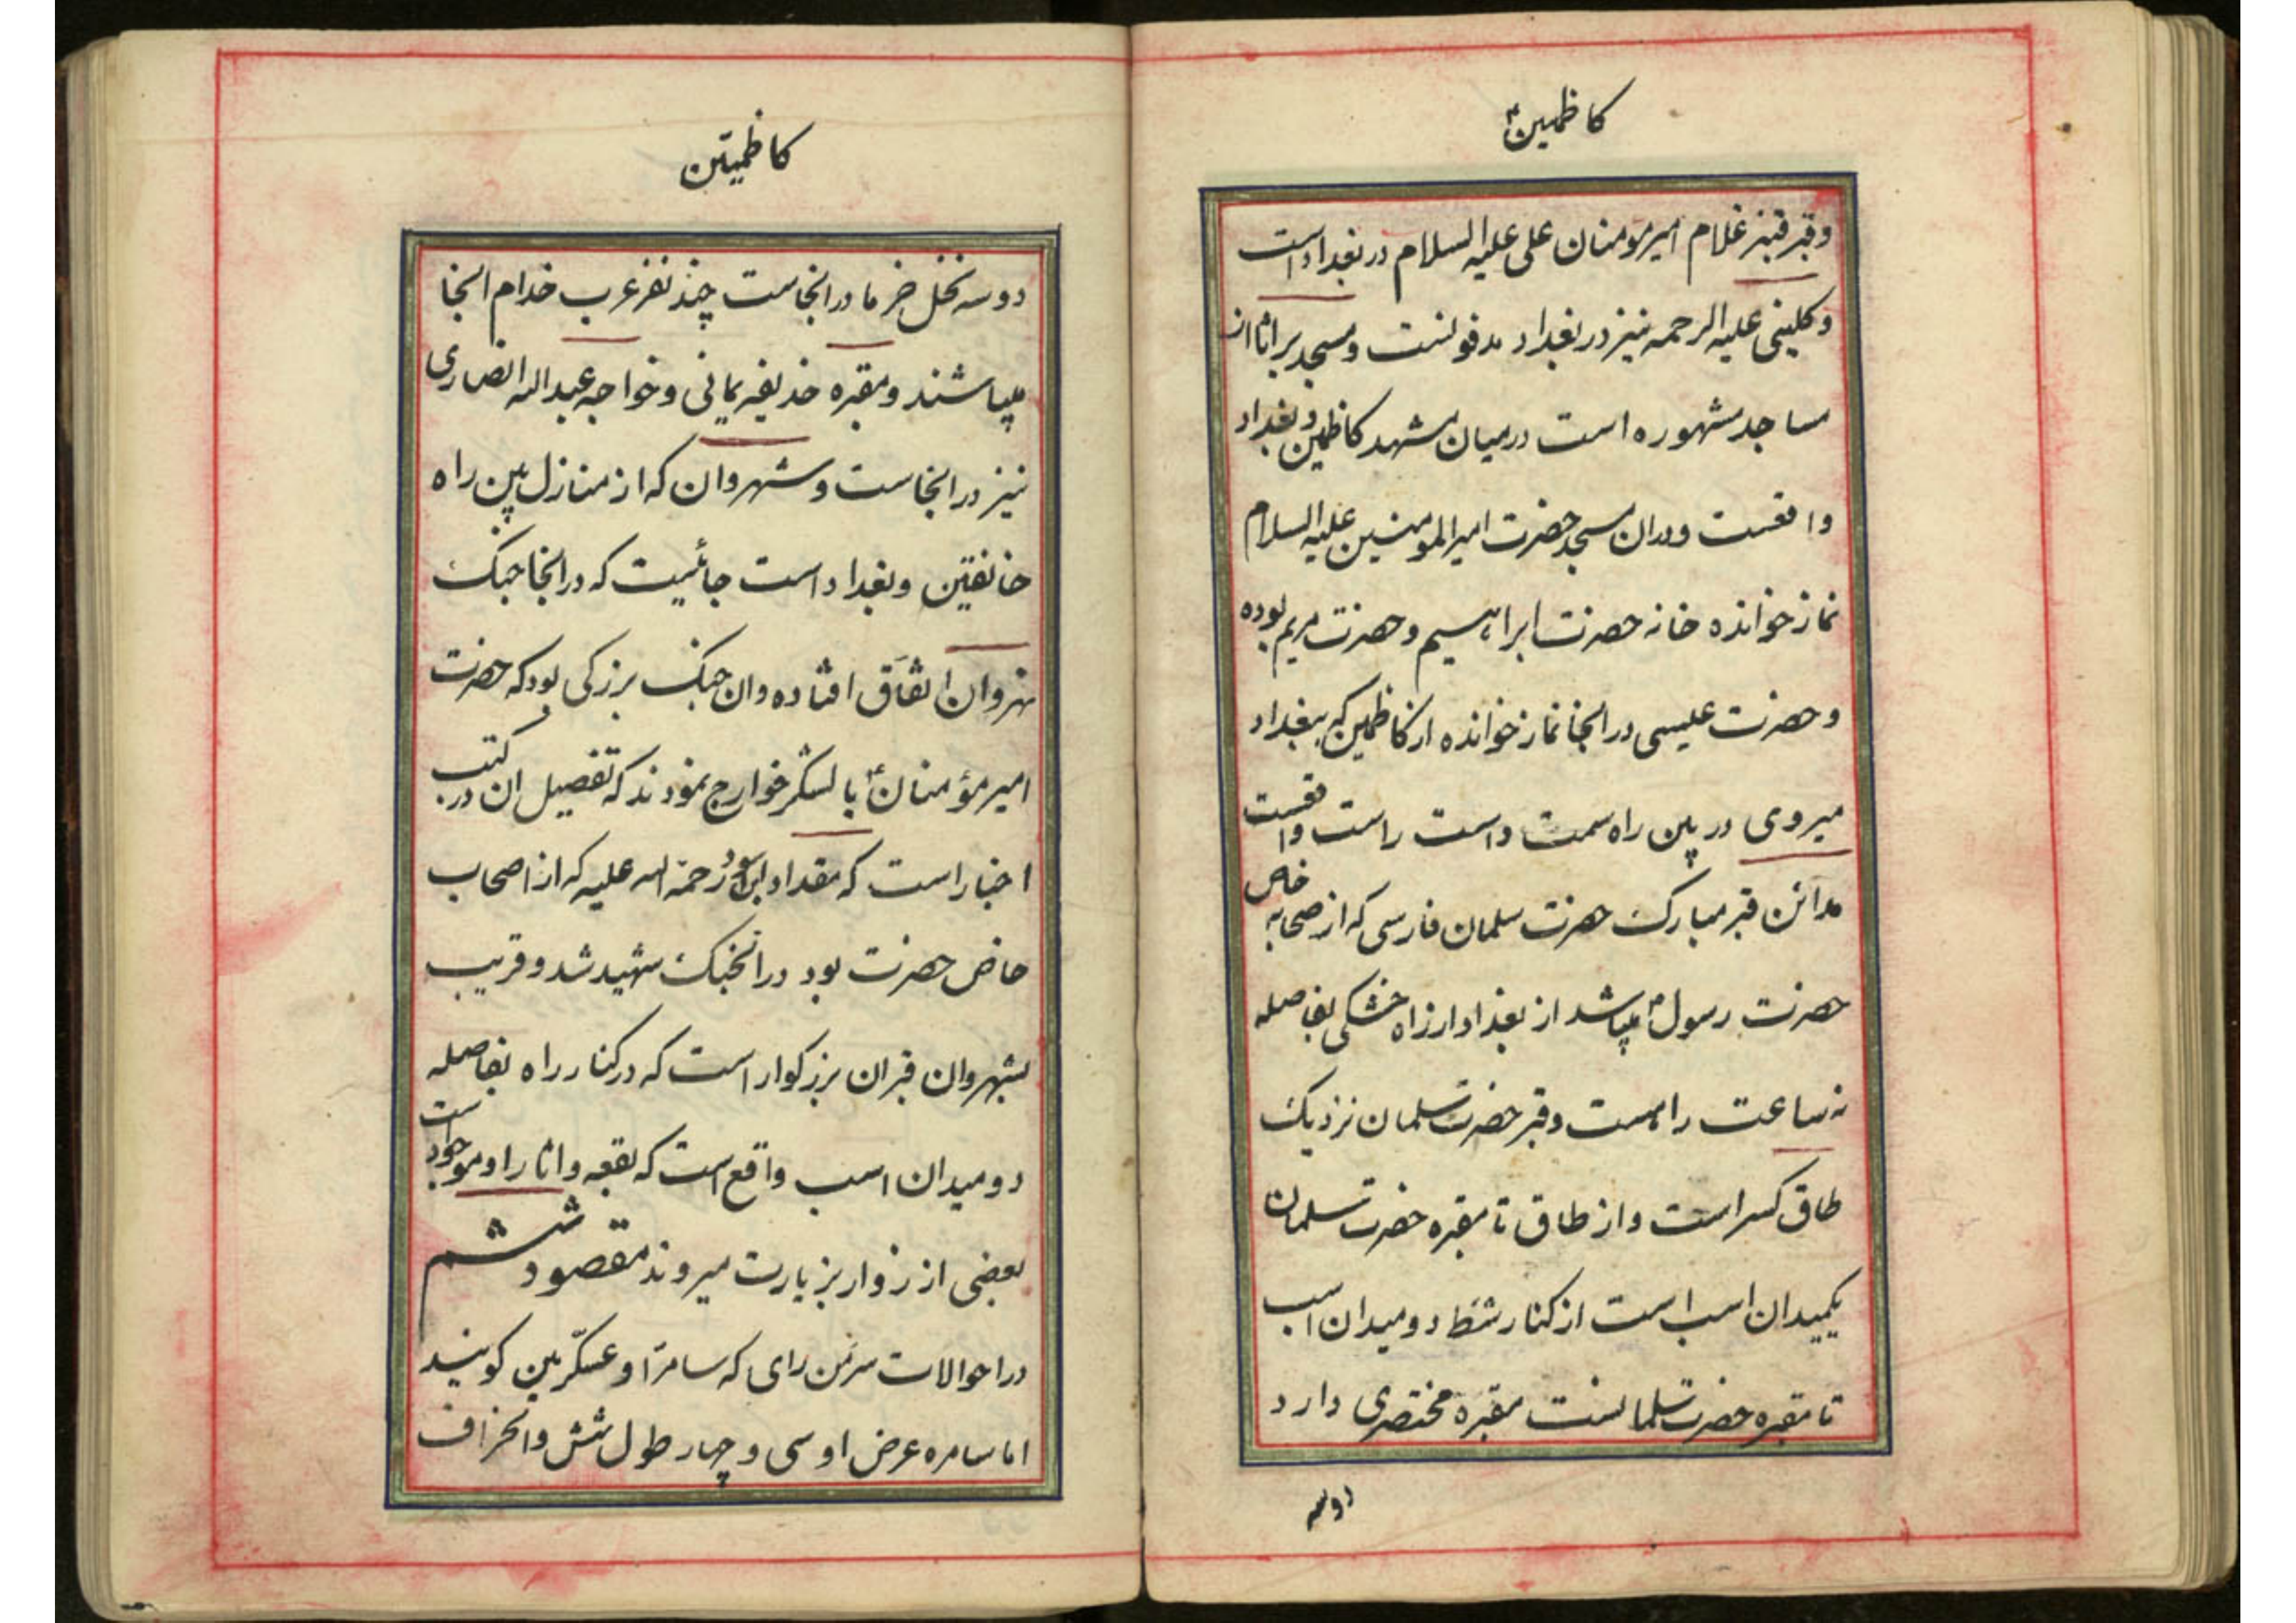 کاظمین ع
وقبر قنبر غلام امیر مومنان علی علیه السلام در بغداد است
و کلینی علیه الرحمه نیز در بغداد مدفونست و مسجد براثا از
مساجد مشهوره است در میان مشهد کاظمین و بغداد
واقعست و در ان مسجد حضرت امیر المومنین علیه السلام
نماز خوانده خانه حضرت ابراهیم و حضرت مریم بوده
و حضرت عیسی در انجا نماز خوانده از کاظمین که ببغداد
میروی در بین راه سمت داست راست واقعست
مدائن قبر مبارک حضرت سلمان فارسی که از صحابه خاص
حضرت رسول ص میباشد از بغداد از راه خشکی بفاصله
نه ساعت راهست و قبر حضرت سلمان نزدیک
طاق کسراست و از طاق تا مقبره حضرت سلمان
یکمیدان اسب است از کنار شط دو میدان اسب
تا مقبره حضرت سلمانست مقبره مختصری دارد
دو سه
کاظمیّن
دو سه نخل خرما در انجاست چند نفر عرب خدام انجا
میباشند و مقبره حذیفه یمانی و خواجه عبدالله انصاری
نیز در انجاست و شهروان که از منازل بین راه
خانقین و بغداد است جائیست که در انجا جنک
نهروان اتفاق افتاده و ان جنک بزرکی بود که حضرت
امیر مؤمنان ع با لشکر خوارج نمودند که تفصیل ان در کتب
اخبار است که مقداد ابن اسود رحمة الله علیه که از اصحاب
خاص حضرت بود در انجنک شهید شد و قریب
بشهروان قبر ان بزرکوار است که در کنار راه بفاصله
دو میدان اسب واقع است که بقعه و اثار او موجود است
بعضی از زوار بزیارت میروند مقصود ششم
در احوالات سرمن رای که سامرا و عسکّریین کویند
اما سامره عرض او سی و چهار طول شش و انحراف